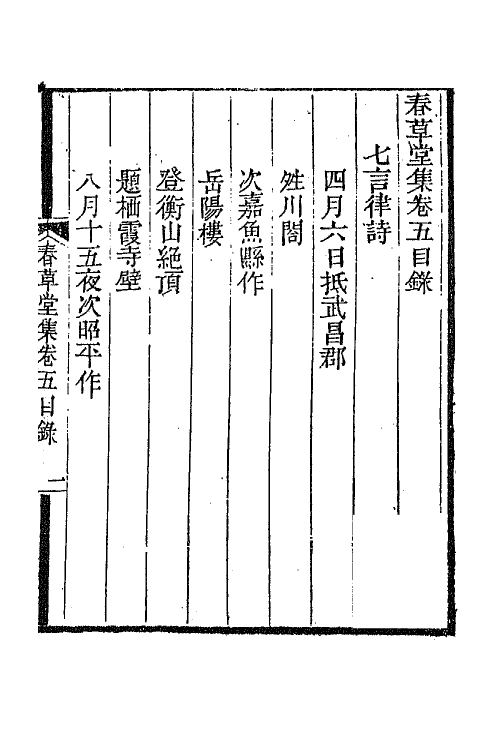 春草堂集卷五目錄
七言律詩
四月六日抵武昌郡
甡川閣
次嘉魚縣作
岳陽樓
登衡山絕頂
題栖霞寺壁
八月十五夜次昭平作
春草堂集卷五目錄